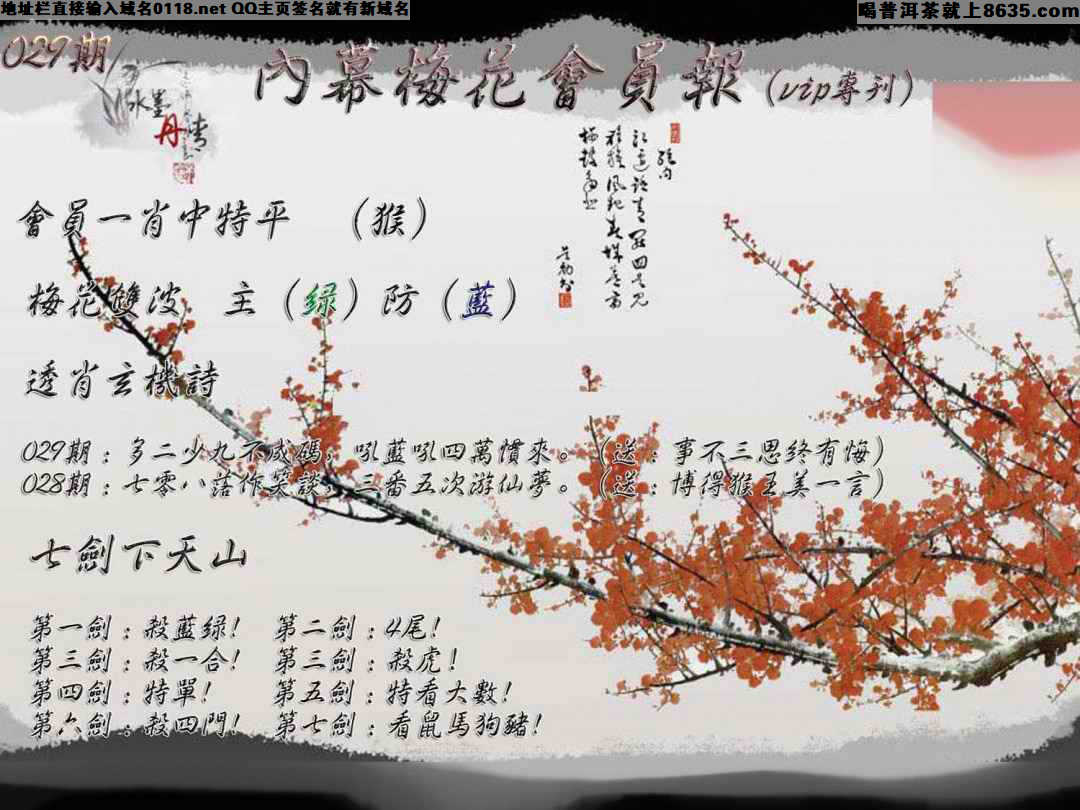 地址栏直接输入域名0118.net QQ主页签名就有新域名
喝普洱茶就上8635.com
029期
水墨丹青
內幕梅花會員報(vip專刊)
會員一肖中特平 (猴)
梅花雙波 主(绿)防(藍)
透肖玄機詩
029期:多二少九不成碼,吼藍吼四萬慣來。(送:事不三思终有悔)
028期:七零八落作笑談,三番五次游仙夢。(送:博得猴王美一言)
七劍下天山
第一劍:殺藍绿! 第二劍:4尾!
第三劍:殺一合! 第三劍:殺虎!
第四劍:特單! 第五劍:特看大數!
第六劍:殺四門! 第七劍:看鼠馬狗豬!